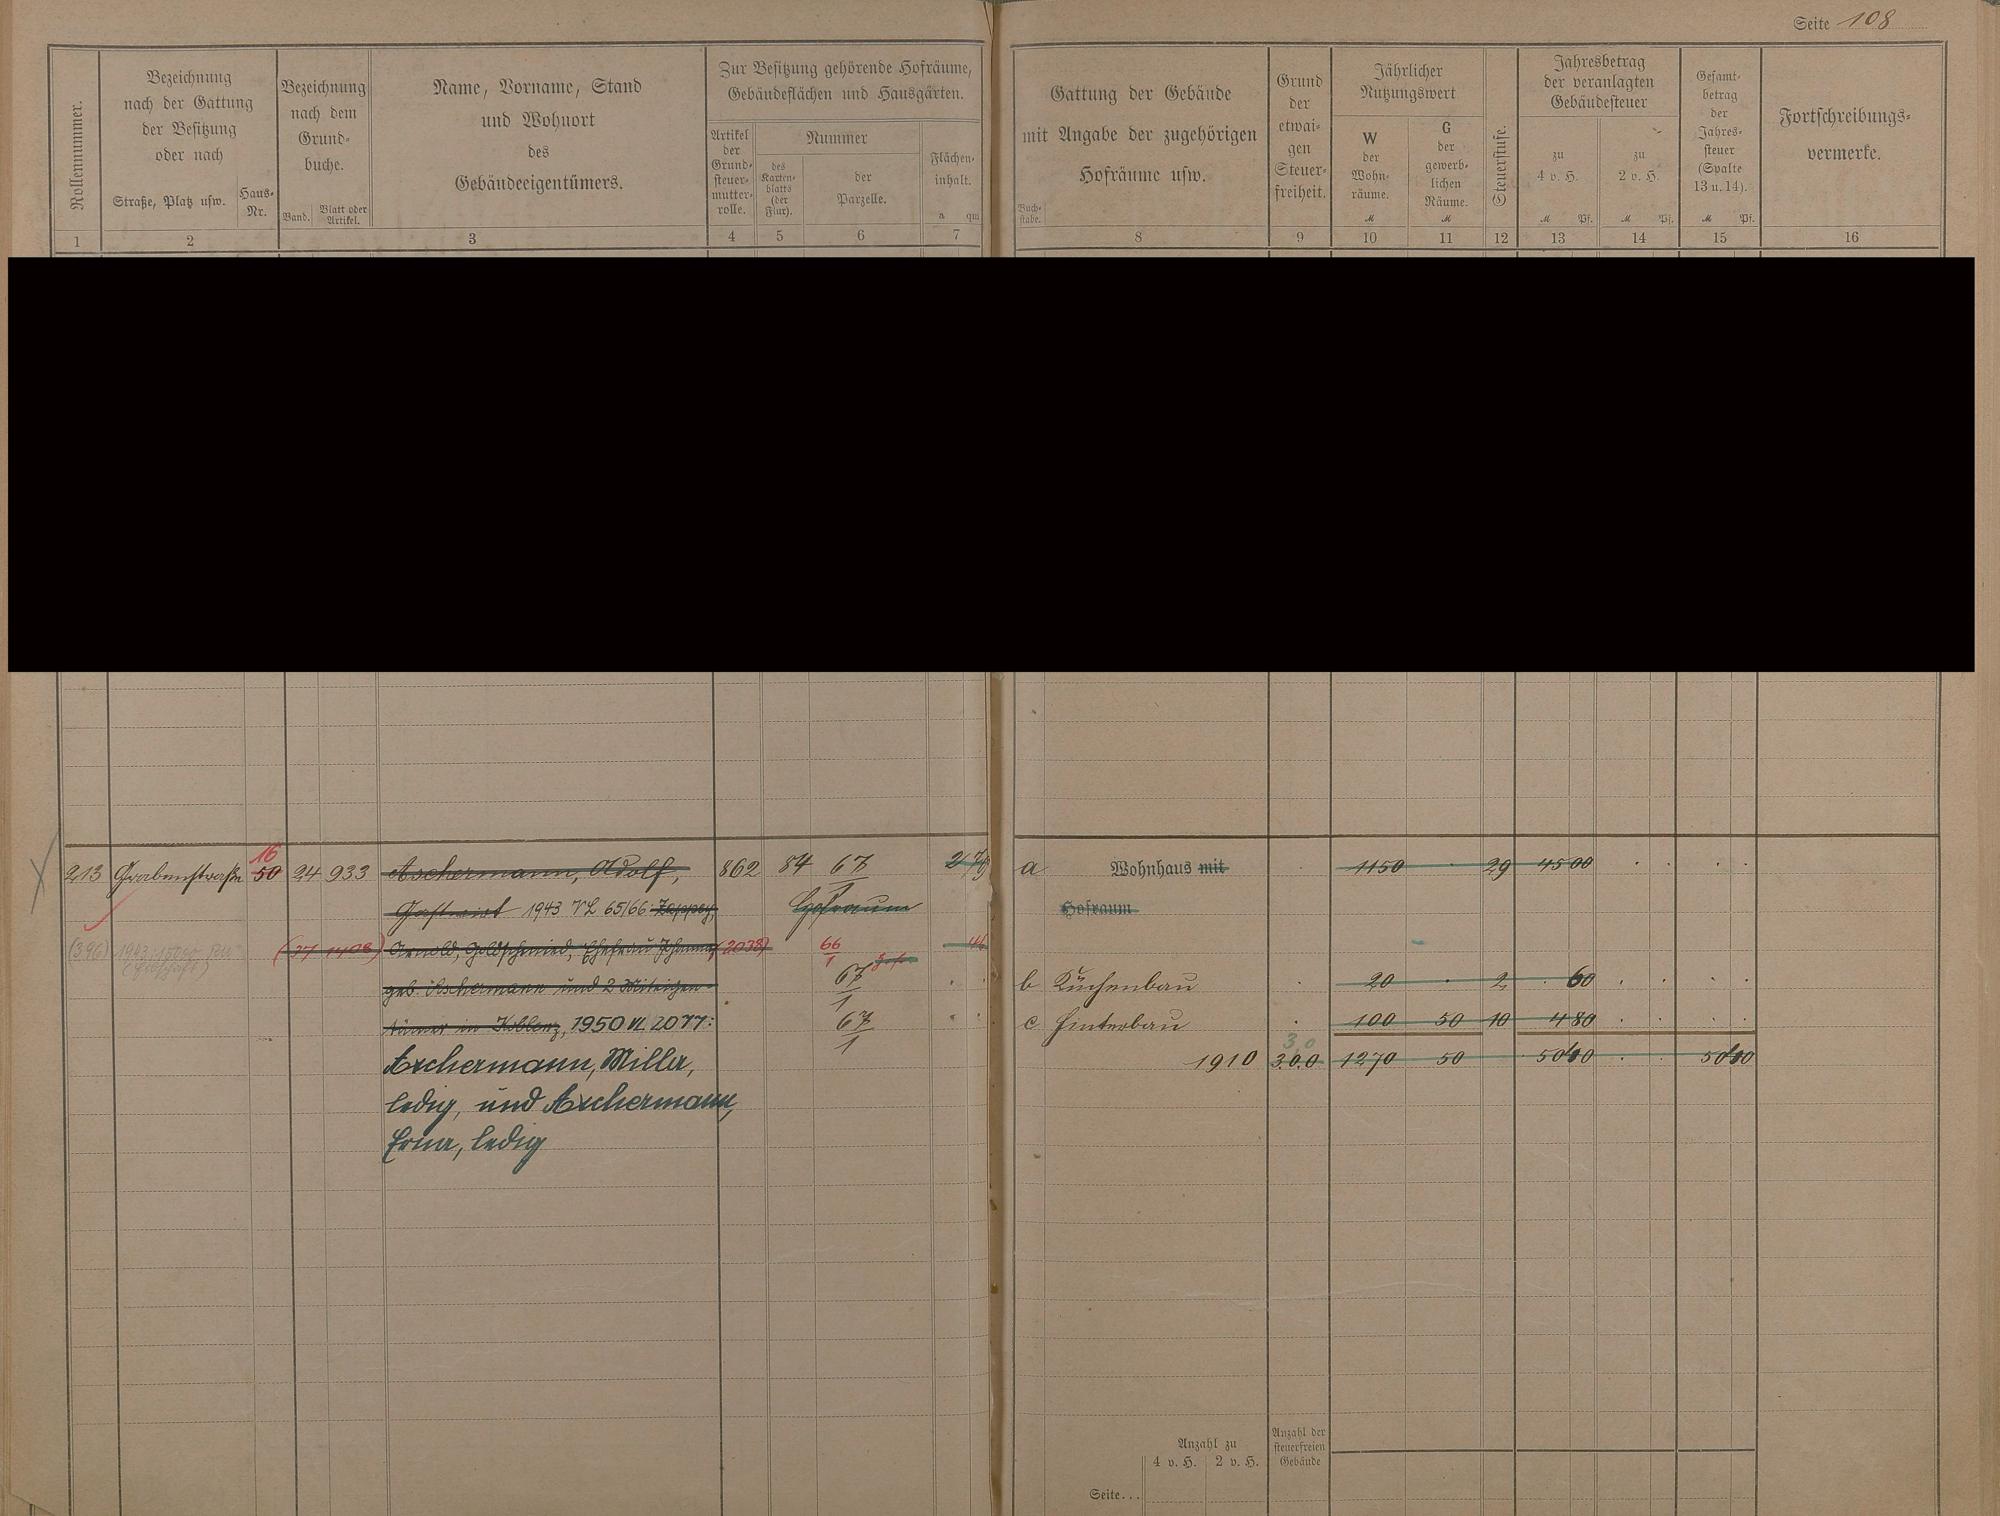 Seite 108
Rollennummer.
Bezeichnung
nach der Gattung
der Besitzung
oder nach
Straße, Platz usw.
Haus-
Nr.
Bezeichnung
nach dem
Grund-
buche.
Band.
Blatt oder
Artikel.
Name, Vorname, Stand
und Wohnort
des
Gebäudeeigentümers.
Zur Besitzung gehörende Hofräume,
Gebäudeflächen und Hausgärten.
Artikel
der
Grund-
steuer-
mutter-
rolle.
Nummer
des
Karten-
blatts
(der
Flur).
der
Parzelle.
Flächen-
inhalt.
a qm
Buch-
stabe.
Gattung der Gebäude
mit Angabe der zugehörigen
Hofräume usw.
Grund
der
etwai-
gen
Steuer-
freiheit.
Jährlicher
Nutzungswert
W
der
Wohn-
räume.
M
G
der
gewerb-
lichen
Räume.
M
Steuerstufe.
Jahresbetrag
der veranlagten
Gebäudesteuer
zu
4 v. H.
M Pf.
zu
2 v. H.
M Pf.
Gesamt-
betrag
der
Jahres-
steuer
(Spalte
13 u. 14).
M Pf.
Fortschreibungs-
vermerke.
1 2 3 4 5 6 7 8 9 10 11 12 13 14 15 16
16
213 Grabenstraße 50 24 933 Aschermann, Adolf, 862 84 67/1 2 79 a Wohnhaus mit 1150 29 45 00
Gastwirt 1943 VL 65/66: Hofraum Hofraum
(396) (37 1408) Arnold, Goldschmied, Ehefrau Johanna (2038) 66/1
geb. Aschermann und 2 Miteigen- 67/1 b Küchenbau 20 2 60
tümer in Koblenz, 1950 VL 2077: 67/1 c Hinterbau 100 50 10 4 80
Aschermann, Milla, 1910 3.0.0 1270 50
ledig, und Aschermann,
Erna, ledig
Anzahl zu
4 v. H. 2 v. H.
Anzahl der
steuerfreien
Gebäude
Seite...